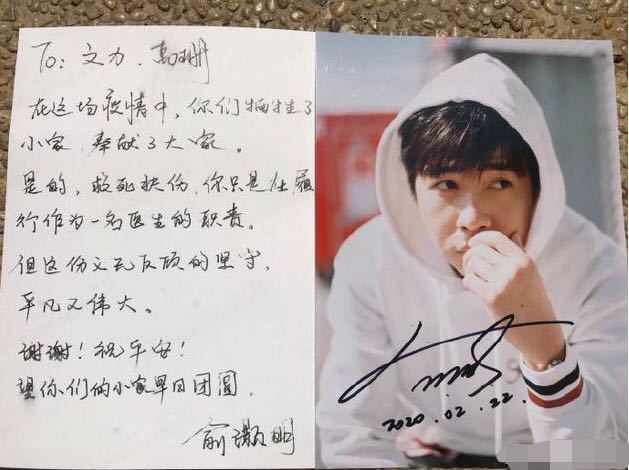 To：文力、
在这场疫情中，你们牺牲了
小家，奉献了大家。
是的，救死扶伤，你只是在履
行作为一名医生的职责。
但这份义无反顾的坚守，
平凡又伟大。
谢谢！祝平安！
望你们的小家早日团圆。
俞灏明
2020.02.22.